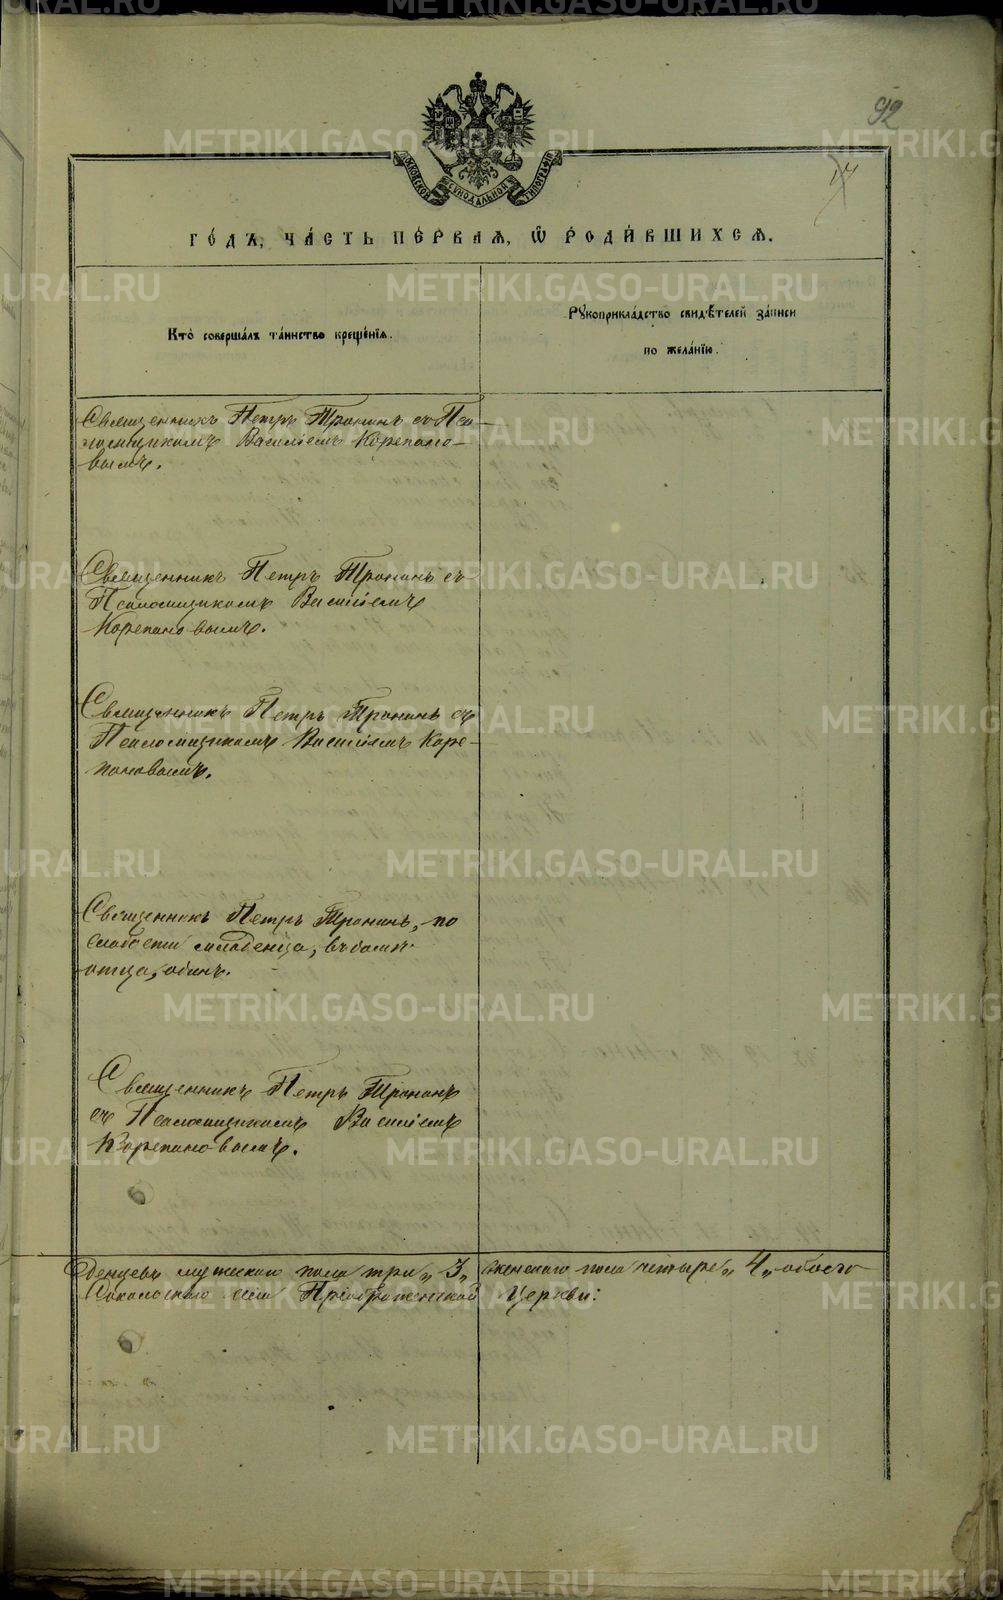 METRIKI.GASO-URAL.RU
92
17
МОСКОВСКОЙ СѴНОДАЛЬНОЙ ТИПОГРАФІИ
ГО́ДЪ, ЧА́СТЬ ПЕ́РВАѦ, Ѡ҆ РОДИ́ВШИХСѦ.
Кто̀ соверша́лъ та́инство креще́нїѧ.
Рꙋкоприкла́дство свидѣ́телей за́писи
по жела́нїю.
Священникъ Петръ Тронинъ съ Пса-
ломщикомъ Василіемъ Корепано-
вымъ.
Священникъ Петръ Тронинъ съ
Псаломщикомъ Василіемъ
Корепановымъ.
Священникъ Петръ Тронинъ съ
Псаломщикомъ Василіемъ Коре-
пановымъ.
Священникъ Петръ Тронинъ, по
слабости младенца, въ домѣ
отца, одинъ.
Священникъ Петръ Тронинъ
съ Псаломщикомъ Василіемъ
Корепановымъ.
денцевъ мужескаго пола три „3„ женскаго пола четыре „4„ обоего
села Преображенской Церкви: